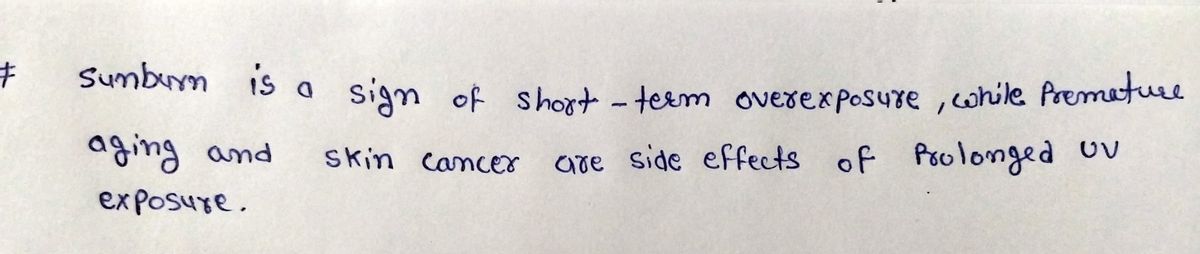 # Sunburn is a sign of short-term overexposure, while Premature
aging and skin cancer are side effects of Prolonged UV
exposure.